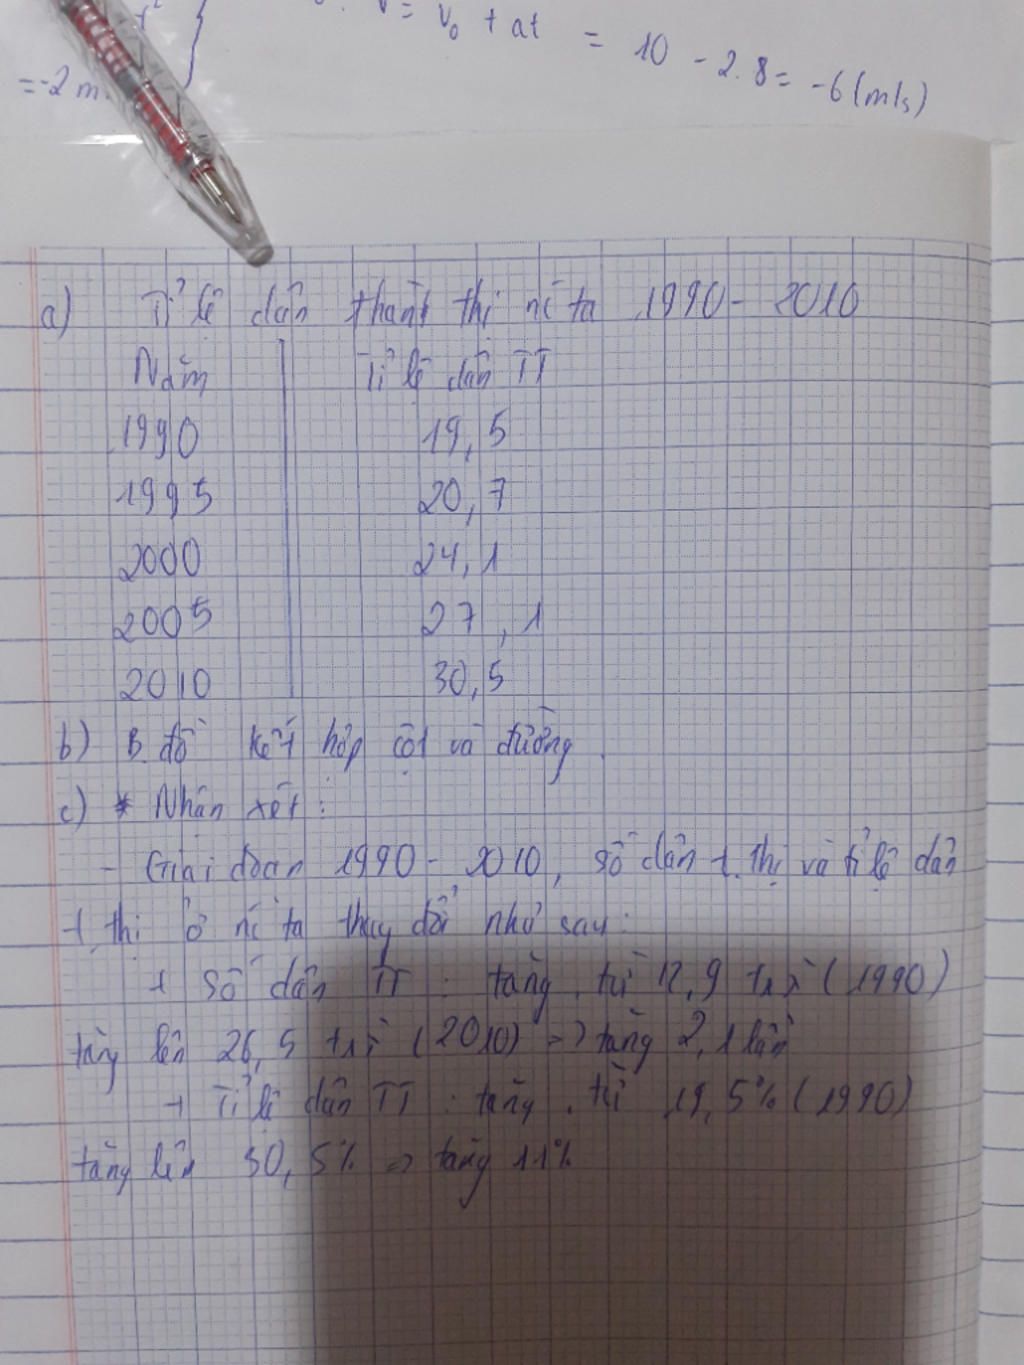 v = v₀ + at = 10 - 2.8 = -6 (m/s)
= -2 m
a) Tỉ lệ dân thành thị nc ta 1990 - 2010
Năm Tỉ lệ dân TT
1990 19,5
1995 20,7
2000 24,1
2005 27,1
2010 30,5
b) B.đồ kết hợp cột và đường.
c) * Nhận xét:
- Giai đoạn 1990 - 2010, số dân t.thị và tỉ lệ dân
t.thị ở nc ta thay đổi như sau:
+ Số dân TT : tăng từ 12,9 tr (1990)
tăng lên 26,5 tr (2010) => tăng 2,1 lần
+ Tỉ lệ dân TT : tăng từ 19,5% (1990)
tăng lên 30,5% => tăng 11%